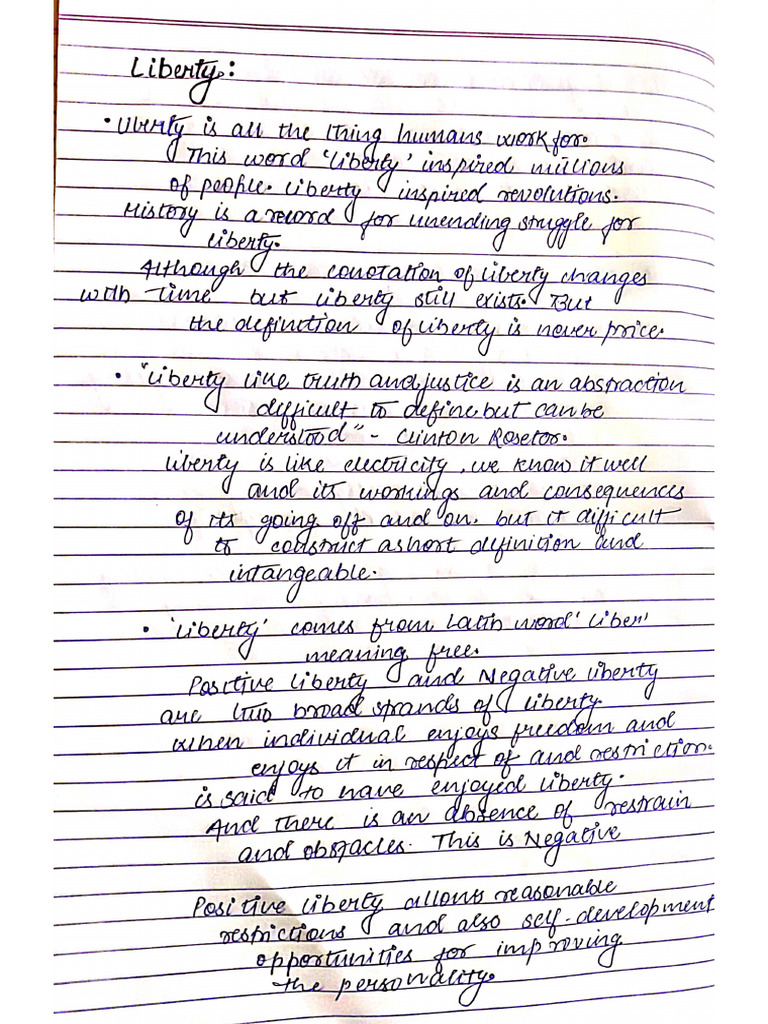 Liberty:
• Liberty is all the thing humans work for.
This word 'liberty' inspired millions
of people. Liberty inspired revolutions.
History is a record for unending struggle for
liberty.
Although the conotation of liberty changes
with time but liberty still exists. But
the definition of liberty is never price.
• "Liberty like truth and justice is an abstraction
difficult to define but can be
understood" - Clinton Rosetor.
Liberty is like electricity, we know it well
and its workings and consequences
of its going off and on. but it difficult
to construct a short definition and
intangeable.
• 'Liberty' comes from Latin word 'Liber'
meaning free.
Positive liberty and Negative liberty
are two broad strands of liberty.
When individual enjoys freedom and
enjoys it in respect of and restriction.
is said to have enjoyed liberty.
And there is an absence of restrain
and obstacles. This is Negative
Positive liberty allows reasonable
restrictions and also self-development
opportunities for improving
the personality.